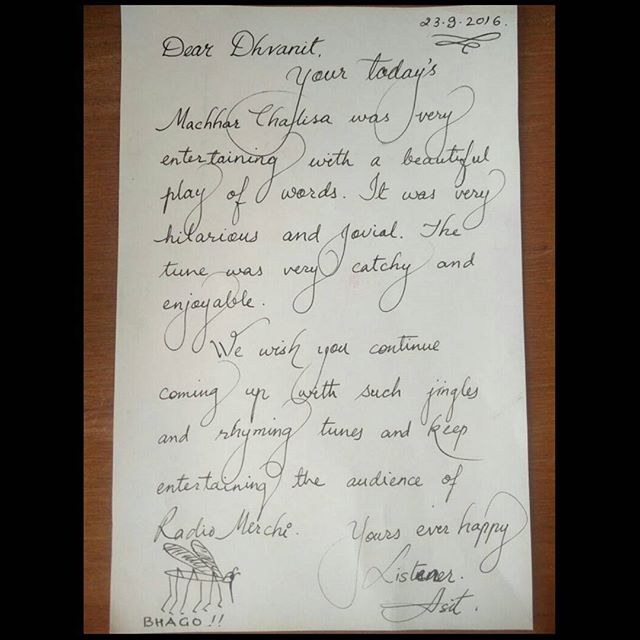 23.9.2016.
Dear Dhvanit,
Your today's
Machhar Chalisa was very
entertaining with a beautiful
play of words. It was very
hilarious and Jovial. The
tune was very catchy and
enjoyable.
We wish you continue
coming up with such jingles
and rhyming tunes and keep
entertaining the audience of
Radio Merchi. Yours ever happy
Listener.
Asit.
BHAGO !!